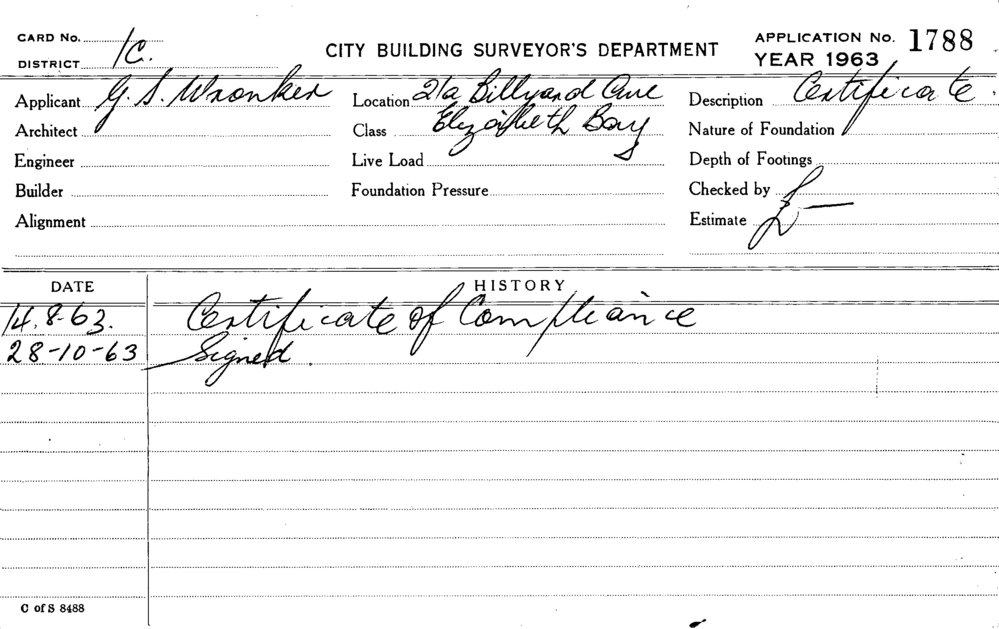 CARD No.
DISTRICT 1C.
CITY BUILDING SURVEYOR'S DEPARTMENT
APPLICATION No. 1788
YEAR 1963
Applicant G. S. Wronker Location 21a Billyard Ave Description Certificate.
Architect Class Elizabeth Bay Nature of Foundation
Engineer Live Load Depth of Footings
Builder Foundation Pressure Checked by
Alignment Estimate £ —
DATE HISTORY
14.8.63. Certificate of Compliance
28-10-63 Signed.
C of S 8488